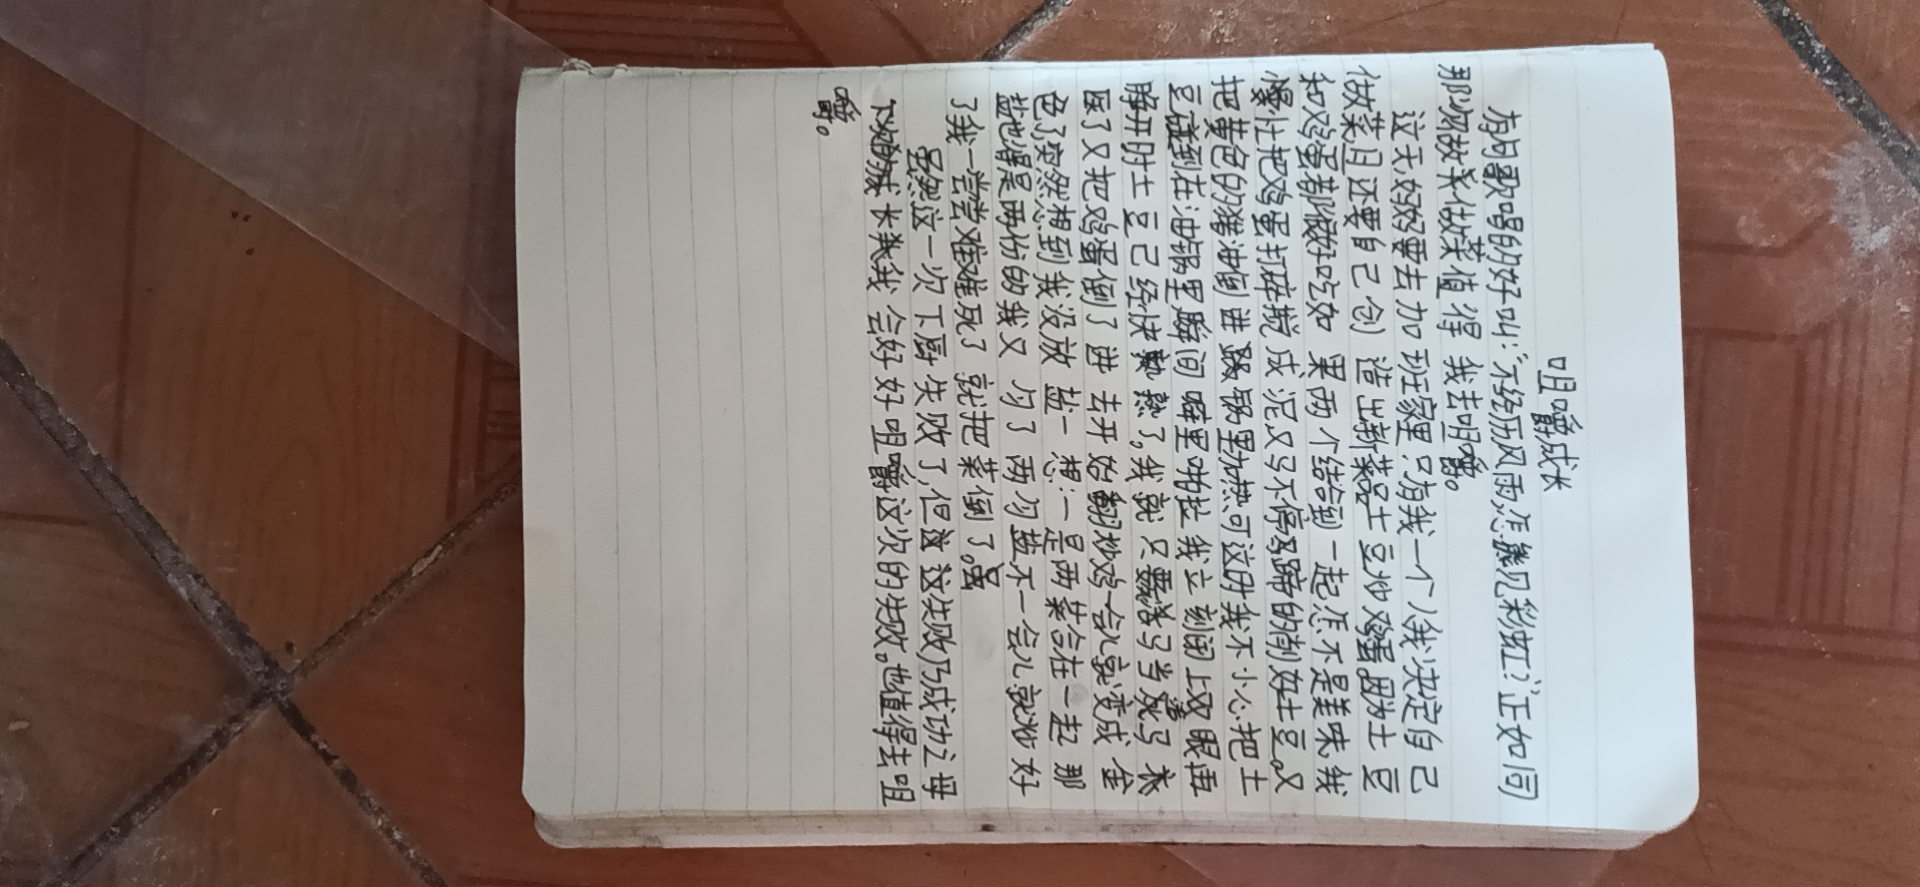 咀嚼成长
有句歌唱的好叫:“不经历风雨,怎能见彩虹?”正如同
那次做菜值得我去咀嚼。
这天,妈妈要去加班家里只有我一个人我决定自己
做菜,且还要自己创造出新菜品土豆炒鸡蛋。因为土豆
和鸡蛋都很好吃如果两个结合到一起怎不是美味我
把鸡蛋打碎搅成泥又马不停蹄的削好土豆。又
把黄色的猪油倒进锅里加热可这时我不小心把土
豆碰到在油锅里瞬间噼里啪拉我立刻闭上双眼再
睁开时土豆已经快熟了,我就只要活马当死马
医了又把鸡蛋倒了进去开始翻炒鸡一会儿就变成金
色了突然想到我没放盐一想:一是两菜合在一起那
盐也得是两份的我又勺了两勺盐不一会儿就炒好
了我一尝难死了就把菜倒了。
虽然这一次下厨失败了,但这失败乃成功之母
成长我会好好咀嚼这次的失败。也值得去咀
嚼。